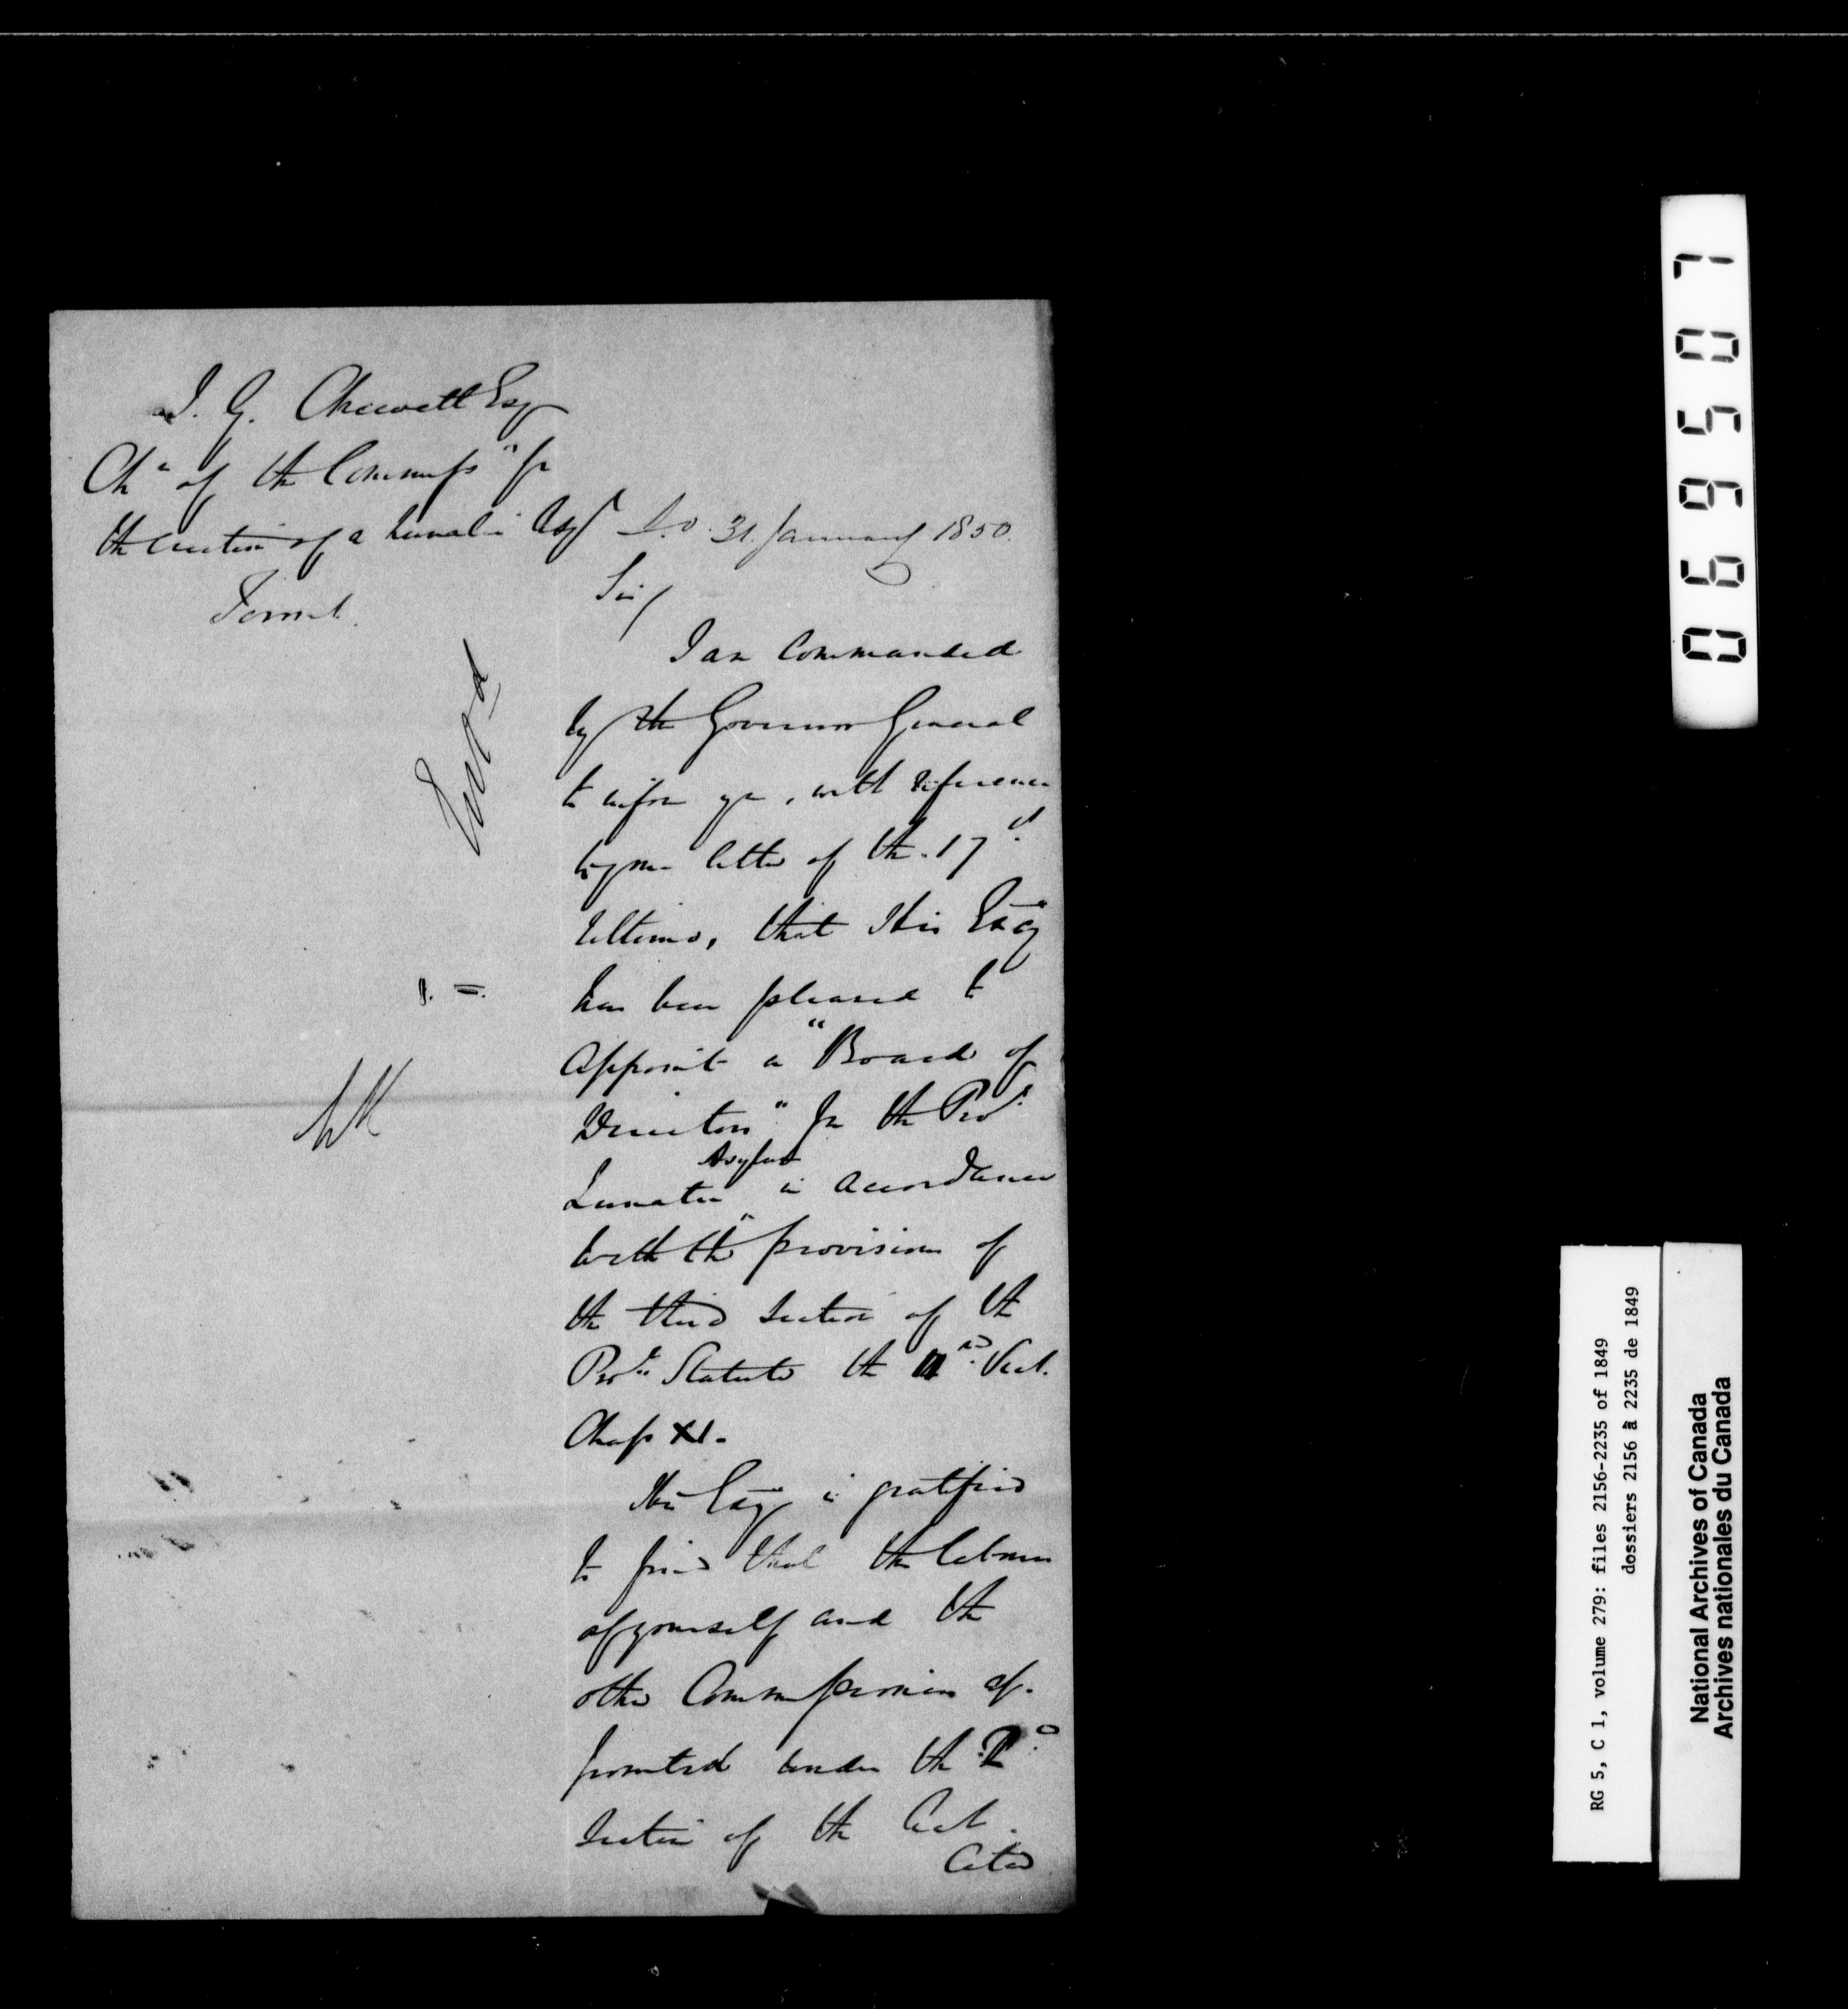 J. G. Chewett Esq
Chn of the Commissrs for
the erection of a Lunatic Asym S.O. 31. January 1850.
Toront.
Sir/
Entd
I am Commanded
by the Governor General
to inform you, with reference
to your letter of the 17th.
Ultimo, that His Excy
has been pleased to
appoint a "Board of
Directors" for the Provl
Lunatic Asylum in accordance
with the provisions of
the third Section of the
Provl. Statute the Vict.
Chap XI.
His Excy is gratified
to find that the labours
of yourself and the
other Commissioners ap-
pointed under the
Section of the Act
Cited
069507
RG 5, C 1, volume 279: files 2156-2235 of 1849
dossiers 2156 à 2235 de 1849
National Archives of Canada
Archives nationales du Canada